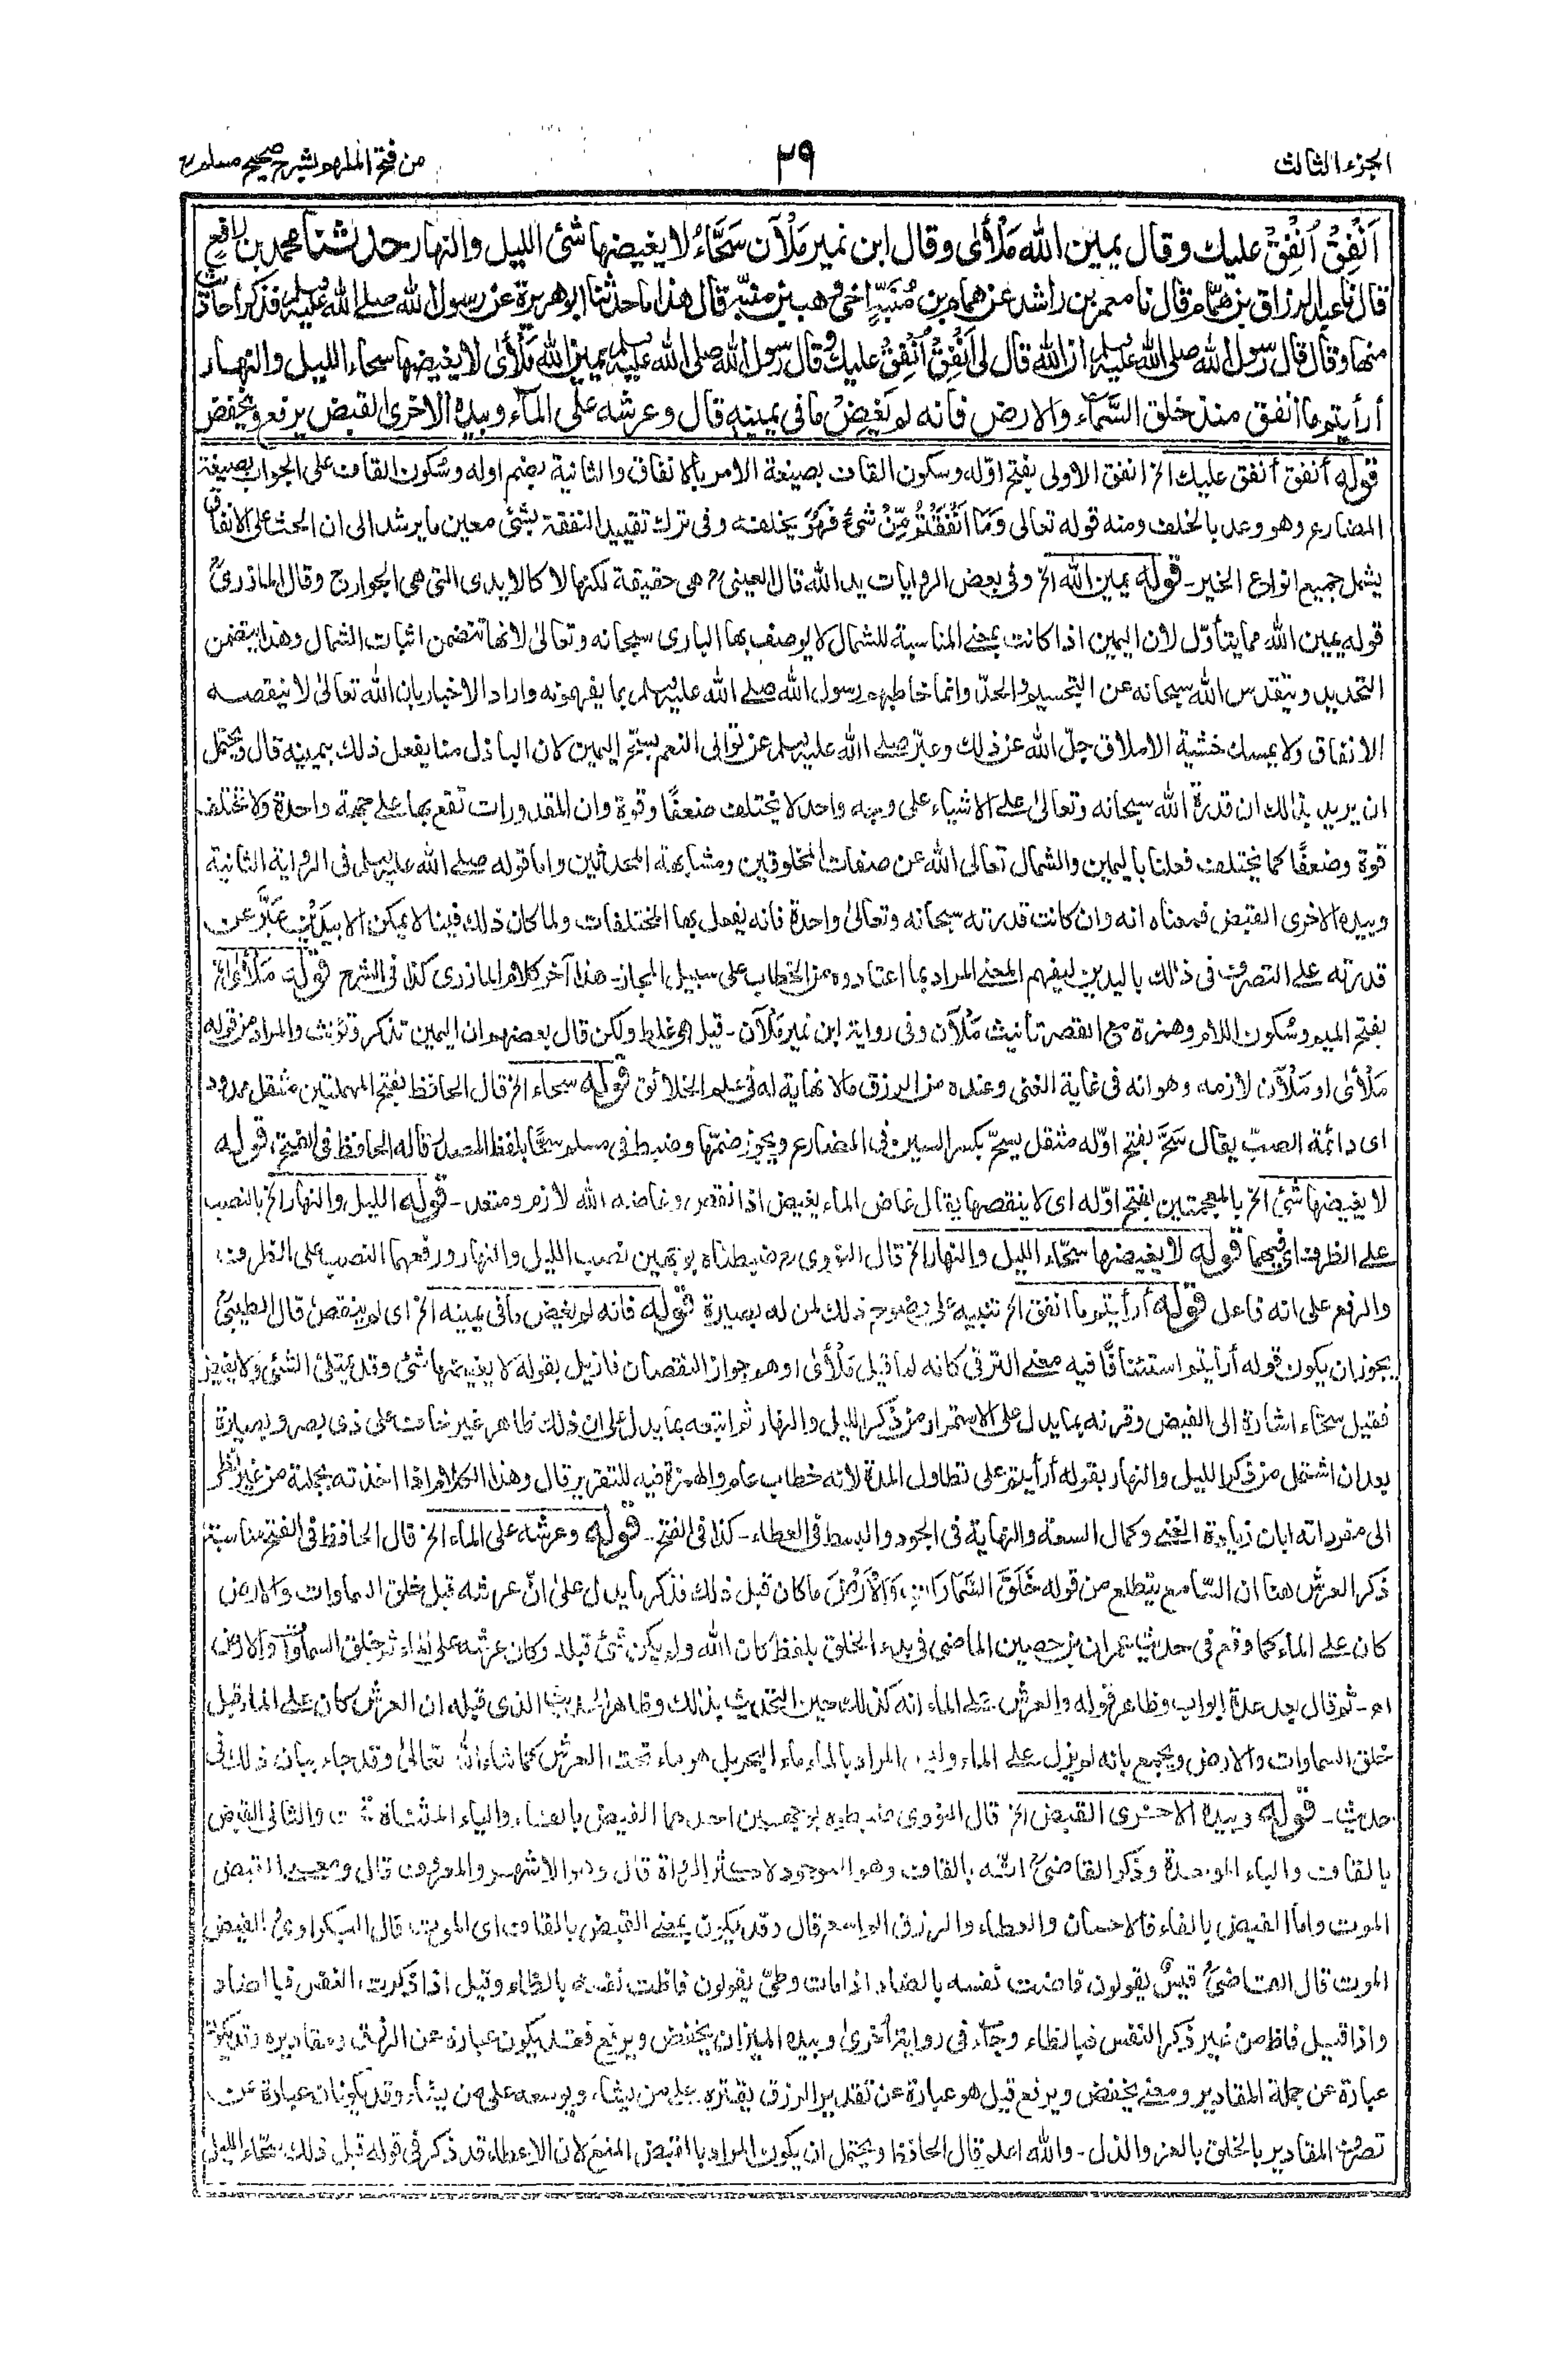 الجزء الثالث
٢٩
من فتح الملهم بشرح صحيح مسلم
اَنْفِقْ اُنْفِقْ عليك وقال يمين الله مَلْأىٰ وقال ابن نمير مَلْآن سَحَّاءُ لا يغيضها شئ الليل والنهار حدثنا محمد بن رافع
قال نا عبد الرزاق بن همّام قال نا معمر بن راشد عن همام بن مُنَبِّهٍ اخى وهب بن منبّه قال هذا ما حدثنا ابوهريرة عن رسول الله صلى الله عليه وسلم فذكر احاديث
منها وقال قال رسول الله صلى الله عليه وسلم ان الله قال لى اَنْفِقْ اُنْفِقْ عليك وقال رسول الله صلى الله عليه وسلم يمين الله مَلْأىٰ لا يغيضها سحاء الليل والنهار
أرأيتم ما انفق منذ خلق السَّماء والارض فانه لم يَغِضْ ما فى يمينه قال وعرشه على المآء وبيده الاخرى القبض يرفع ويخفض
قوله أنفق أنفق عليك الخ انفق الاولى بفتح اوّله وسكون القاف بصيغة الامر بالانفاق والثانية بضم اوله وسُكون القاف على الجواب بصيغة
المضارع وهو وعد بالخلف ومنه قوله تعالى وَمَا اَنْفَقْتُمْ مِّنْ شَىْءٍ فَهُوَ يخلفه وفى ترك تقييد النفقة بشئ معين ما يرشد الى ان الحث على الانفاق
يشمل جميع انواع الخير ـ قوله يمين الله الخ وفى بعض الروايات يد الله قال العينى هى حقيقة لكنها لا كالايدى التى هى الجوارح وقال المازرىؒ
قوله يمين الله مما يتأوّل لأن اليمين اذا كانت بمعنى المناسبة للشمال لا يوصف بها البارى سبحانه وتعالىٰ لانها تتضمن اثبات الشمال وهذا يتضمن
التحديد ويتقدس الله سبحانه عن التجسيم والحدّ وانما خاطبهم رسول الله صلى الله عليه وسلم بما يفهمونه واراد الاخبار بان الله تعالىٰ لا ينقصه
الانفاق ولا يمسك خشية الاملاق جلّ الله عن ذلك وعبّر صلى الله عليه وسلم عن توالى النعم بسَحّ اليمين لان الباذل منا يفعل ذلك بيمينه قال ويحتمل
ان يريد بذالك ان قدرة الله سبحانه وتعالىٰ على الاشياء على وجه واحد لا يختلف ضعفًا وقوة وان المقدورات تقع بها على جهة واحدة ولا تختلف
قوة وضعفًا كما يختلف فعلنا باليمين والشمال تعالى الله عن صفات المخلوقين ومشابهة المحدثين واما قوله صلى الله عليه وسلم فى الرواية الثانية
وبيده الاخرى القبض فمعناه انه وان كانت قدرته سبحانه وتعالىٰ واحدة فانه يفعل بها المختلفات ولما كان ذلك فينا لا يمكن الا بيَدَيْنِ عَبَّر عن
قدرته على التصرف فى ذلك باليدين ليفهم المعنى المراد بما اعتادوه من الخطاب على سبيل المجاز ـ هذا آخر كلام المازرى كذا فى الشرح قوله مَلْأىٰ الخ
بفتح الميم وسُكون اللام وهمزة مع القصر تأنيث مَلْآن وفى رواية ابن نمير مَلْآن ـ قيل هى غلط ولكن قال بعضهم ان اليمين تذكر وتؤنث والمراد من قوله
مَلْأىٰ او مَلْآن لازمه، وهو انه فى غاية الغنى وعنده من الرزق مالا نهاية له فى علم الخلائق قوله سحاء الخ قال الحافظ بفتح المهملتين مثقل ممدود
اى دائمة الصبّ يقال سَحَّ بفتح اوّله مثقل يسحّ بكسر السين فى المضارع ويجوز ضمّها وضبط فى مسلم سحًّا بلفظ المصدر قاله الحافظ فى الفتح، قوله
لا يغيضها شئ الخ بالمعجمتين بفتح اوّله اى لا ينقصها يقال غاض الماء يغيض اذا نقص وغاضه الله لازم ومتعد ـ قوله الليل والنهار الخ بالنصب
على الظرف اى فيهما قوله لا يغيضها سحّاء الليل والنهار الخ قال النووى ضبطناه بوجهين نصب الليل والنهار ورفعهما النصب على الظرف
والرفع على انه فاعل قوله أرأيتم ما انفق الخ تنبيه على وضوح ذلك لمن له بصيرة قوله فانه لم يغض ما فى يمينه الخ اى لم ينقص قال الطيبىؒ
يجوز ان يكون قوله أرأيتم استئنافًا فيه معنى الترقى كانه لما قيل مَلْأىٰ اوهم جواز النقصان فازيل بقوله لا يغيضها شئ وقد يمتلئ الشئ ولا يغيض
فقيل سحّاء اشارة الى الفيض وقرنه بما يدل على الاستمرار من ذكر الليل والنهار ثم اتبعه بما يدل على ان ذلك ظاهر غير خاف على ذى بصر وبصيرة
بعد ان اشتمل من ذكر الليل والنهار بقوله أرأيتم على تطاول المدة لانه خطاب عام والهمزة فيه للتقرير قال وهذا الكلام اذا اخذته بجملة من غير نظر
الى مفرداته ابان زيادة الغنى وكمال السعة والنهاية فى الجود والبسط فى العطاء ـ كذا فى الفتح ـ قوله وعرشه على الماء الخ قال الحافظ فى الفتح مناسبة
ذكر العرش هنا ان السّامع يتطلع من قوله خَلَقَ السَّمَاوَاتِ وَالْاَرْضَ ما كان قبل ذلك فذكر ما يدل علىٰ انّ عرشه قبل خلق السماوات والارض
كان على الماء كما وقع فى حديث عمران بن حصين الماضى فى بدء الخلق بلفظ كان الله ولم يكن شئ قبله وكان عرشه على الماء ثم خلق السماوات والارض
اه ـ ثم قال بعد عدة ابواب وظاهر قوله والعرش على الماء انه كذلك حين التحديث بذالك وظاهر الحديث الذى قبله ان العرش كان على الماء قبل
خلق السماوات والارض ويجمع بانه لم يزل على الماء وليس المراد بالماء ماء البحر بل هو ماء تحت العرش كما شاء الله تعالىٰ وقد جاء بيان ذلك فى
حديث ـ قوله وبيده الاخرى القبض الخ قال النووى ضبطوه بوجهين احدهما الفيض بالفاء والياء المثناة تحت والثانى القبض
بالقاف والباء الموحدة وذكر القاضىؒ انّه بالقاف وهو الموجود لاكثر الرواة قال وهو الاشهر والمعروف قال ومعنى القبض
الموت واما الفيض بالفاء فالاحسان والعطاء والرزق الواسع قال وقد يكون بمعنى القبض بالقاف اى الموت قال البكراوىؒ الفيض
الموت قال القاضىؒ قيسٌ يقولون فاضت نفسه بالضاد اذا مات وطىّ يقولون فاظت نفسه بالظاء وقيل اذا ذكرت النفس فبالضاد
واذا قيل فاظ من غير ذكر النفس فبالظاء وجآء فى رواية أخرىٰ وبيده الميزان يخفض ويرفع فقد يكون عبارة عن الرزق ومقاديره وقد يكون
عبارة عن جملة المقادير ومعنى يخفض ويرفع قيل هو عبارة عن تقدير الرزق يقتره على من يشاء ويوسعه على من يشاء وقد يكونان عبارة عن
تصرف المقادير بالخلق بالعز والذل ـ والله اعلم قال الحافظ ويحتمل ان يكون المراد بالقبض المنع لان الاعطاء قد ذكر فى قوله قبل ذلك سحّاء الليل